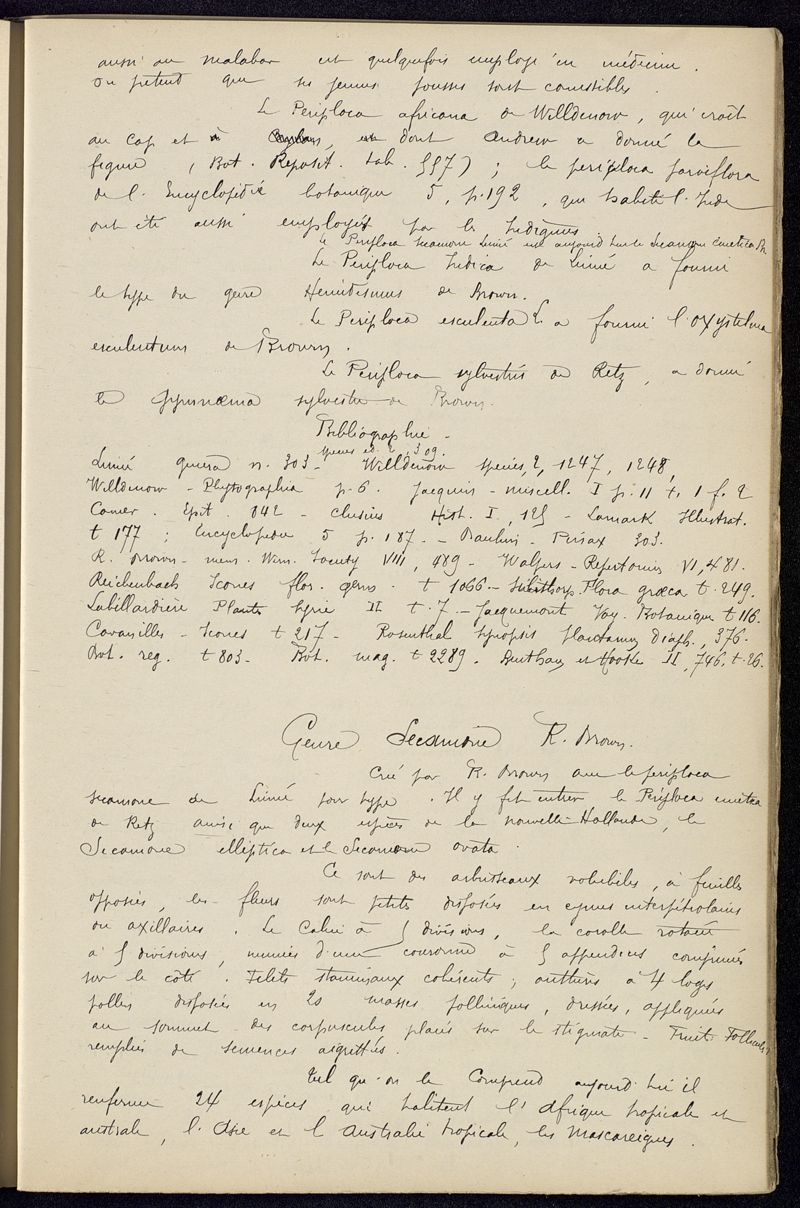 aussi au Malabar est quelquefois employé en médecine.
On pretend que ses jeunes pousses sont comestibles.
Le Periploca africana de Willdenow, qui croît
au Cap et à dont Andrew a donné la
figure (Bot. Reposit. tab. 557); le periploca parviflora
de l'Encyclopédie botanique 5, p. 192, qui habite l'Inde
ont été aussi employés par les Indigenes
Le Periploca secamone Linné est aujourd'hui le Secamone
Le Periploca Indica de Linné a fourni
le type du genre Hemidesmus de Brown.
Le Periploca esculenta L. a fourni l'oxystelma
esculentum de Brown.
Le Periploca sylvestris de Retz, a donné
le gymnæma sylvestre de Brown.
Bibliographie.
species ed. 2, 309.
Linné genera n. 303 - Willdenow species, 2, 1247, 1248,
Willdenow - Phytographia p. 6. Jacquin - miscell. I p. 11 t. 1 f. 2
Camer. Epit. 842 - Clusius Hist. I, 125 - Lamark Illustrat.
t 177; Encyclopedie 5 p. 187 - Bauhin - Pinax 303.
R. Brown - mem. Wern. Society VIII, 489 - Walpers - Repertorium VI, 481.
Reichenbach Icones flor. germ. t 1066 - Sibthorp. Flora græca t. 249.
Labillardière Plantes Syrie II t. 7 - Jacquemont Voy. Botanique t 116.
Cavanilles - Icones t 217 - Rosenthal Synopsis plantarum Diaph., 376.
Bot. reg. t 803. Bot. mag. t 2289. Bentham et Hooker II, 746. t. 26.
Genre Secamone R. Brown.
Créé par R. Brown avec le periploca
secamone de Linné pour type. Il y fit entrer le Periploca emetica
de Retz ainsi que deux espèces de la nouvelle Hollande, le
Secamone elliptica et le Secamone ovata.
Ce sont des arbrisseaux volubiles, à feuilles
opposées, les fleurs sont petites disposées en cymes interpétiolaires
ou axillaires. Le Calice à 5 divisions, la corolle rotacée
à 5 divisions, munies d'une couronne à 5 appendices comprimés
sur le côté. Filets staminaux cohérents; anthères à 4 loges
pollen disposées en 20 masses polliniques, dressées, appliquées
au sommet des corpuscules placés sur le stigmate - Fruits Follicules
remplies de semences aigrettées.
Tel qu'on le Comprend aujourd'hui il
renferme 24 espèces qui habitent l'Afrique tropicale et
australe, l'Asie et l'Australie tropicale, les Mascareignes.